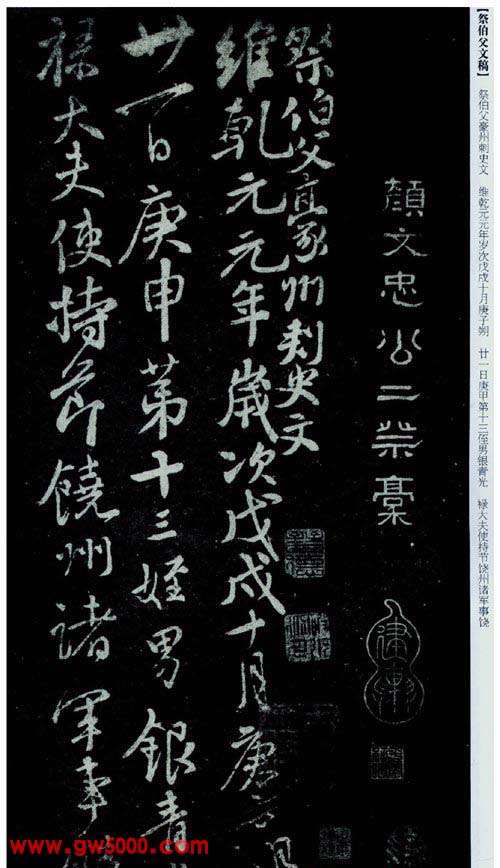 【祭伯父文稿】 祭伯父豪州刺史文 维乾元元年岁次戊戌十月庚子朔 廿一日庚甲第十三侄男银青光 禄大夫使持节饶州诸军事饶
顏文忠公二祭稾
祭伯父豪州刺史文
維乾元元年歲次戊戌十月庚子
廿一日庚申第十三姪男銀青
祿大夫使持節饒州諸軍事
www.gw5000.com